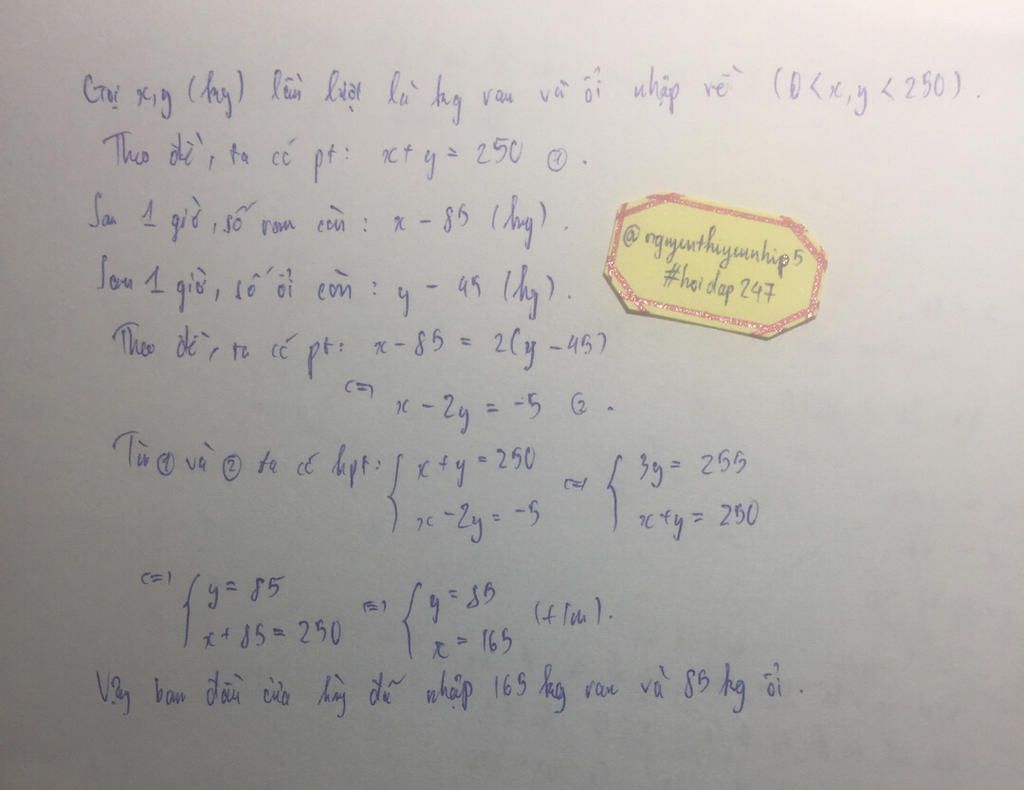 Gọi x,y (kg) lần lượt là kg rau và ổi nhập về (0 < x, y < 250).
Theo đề, ta có pt: x + y = 250 ①.
Sau 1 giờ, số rau còn: x - 85 (kg).
Sau 1 giờ, số ổi còn: y - 45 (kg).
Theo đề, ta có pt: x - 85 = 2(y - 45)
<=> x - 2y = -5 ②.
Từ ① và ② ta có hpt: { x + y = 250 <=> { 3y = 255
x - 2y = -5 x + y = 250
<=> { y = 85 <=> { y = 85 (t/m).
x + 85 = 250 x = 165
Vậy ban đầu cửa hàng đã nhập 165 kg rau và 85 kg ổi.
@nguyenthuyannhip5
#hoidap247